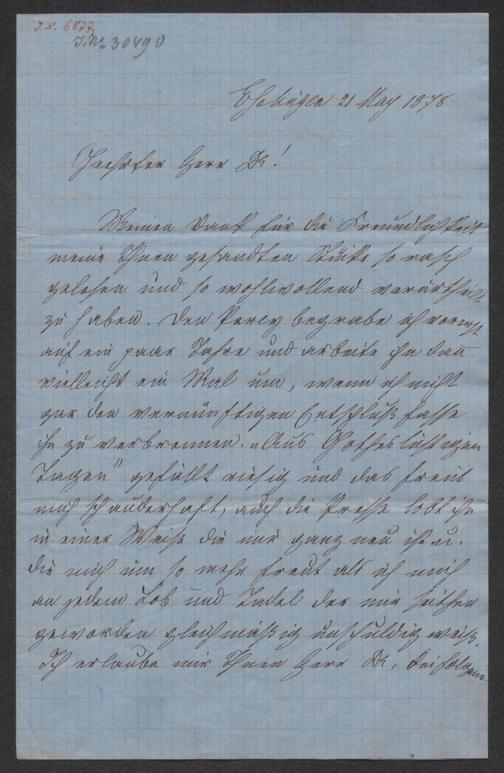 J. N. 6877
J. No 30490
Ehrbingen 21 May 1878
Geehrter Herr Dr!
Meinen Dank für die Freundlichkeit
meine Ihnen gesandten Stücke so rasch
gelesen und so wohlwollend
zu haben. Den Percy begrabe ich vorerst
auf ein paar Jahre und arbeite ihn dan
vielleicht ein Mal um, wenn ich nicht
gar den vernünftigen Entschluß fasse
ihn zu verbrennen. „Aus Göthes lustigen
Tagen" gefällt riesig und das freut
mich schauderhaft, auch die Presse lobt ihn
in einer Weise die mir ganz neu ist u.
die mich um so mehr freut als ich mich
an jedem Lob und Tadel der mir seither
geworden gleichmäßig unschuldig weiß.
Ich erlaube mir Ihnen Herr Dr,